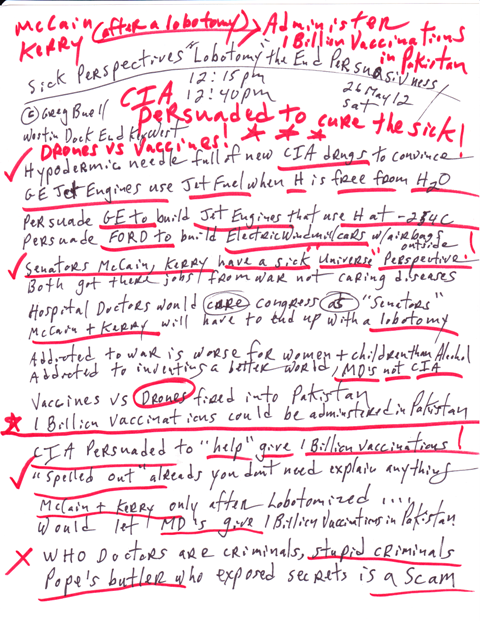 McCain (after a lobotomy) > Administer
Kerry 1 Billion Vaccinations
in Pakistan
Sick Perspectives "Lobotomy" the End Persuasivness
12:15pm
CIA 12:40pm 26 May 12
Sat
© Greg Buell
persuaded to cure the sick!
Westin Dock End Key West
Drones vs Vaccines! * * *
Hypodermic needle full of new CIA drugs to convince
GE Jet Engines use Jet Fuel when H is free from H2O
Persuade GE to build Jet Engines that use H at -254C
Persuade FORD to build Electric Windmill cars w/airbags
outside!
Senators McCain, Kerry have a sick "Universe" Perspective!
Both got there jobs from war not caring diseases
Hospital Doctors would cure congress as "Senators"
McCain + Kerry will have to end up with a lobotomy
Addicted to war is worse for women + children than Alcohol
Addicted to inventing a better world, MD's not CIA
Vaccines vs Drones fired into Pakistan
* 1 Billion Vaccinations could be administered in Pakistan
CIA Persuaded to "help" give 1 Billion vaccinations!
"Spelled out" already you don't need explain anything
McCain + Kerry only after Lobotomized ....,
would let MD's give 1 Billion Vaccinations in Pakistan
WHO Doctors are criminals, stupid criminals
Pope's butler who exposed secrets is a Scam